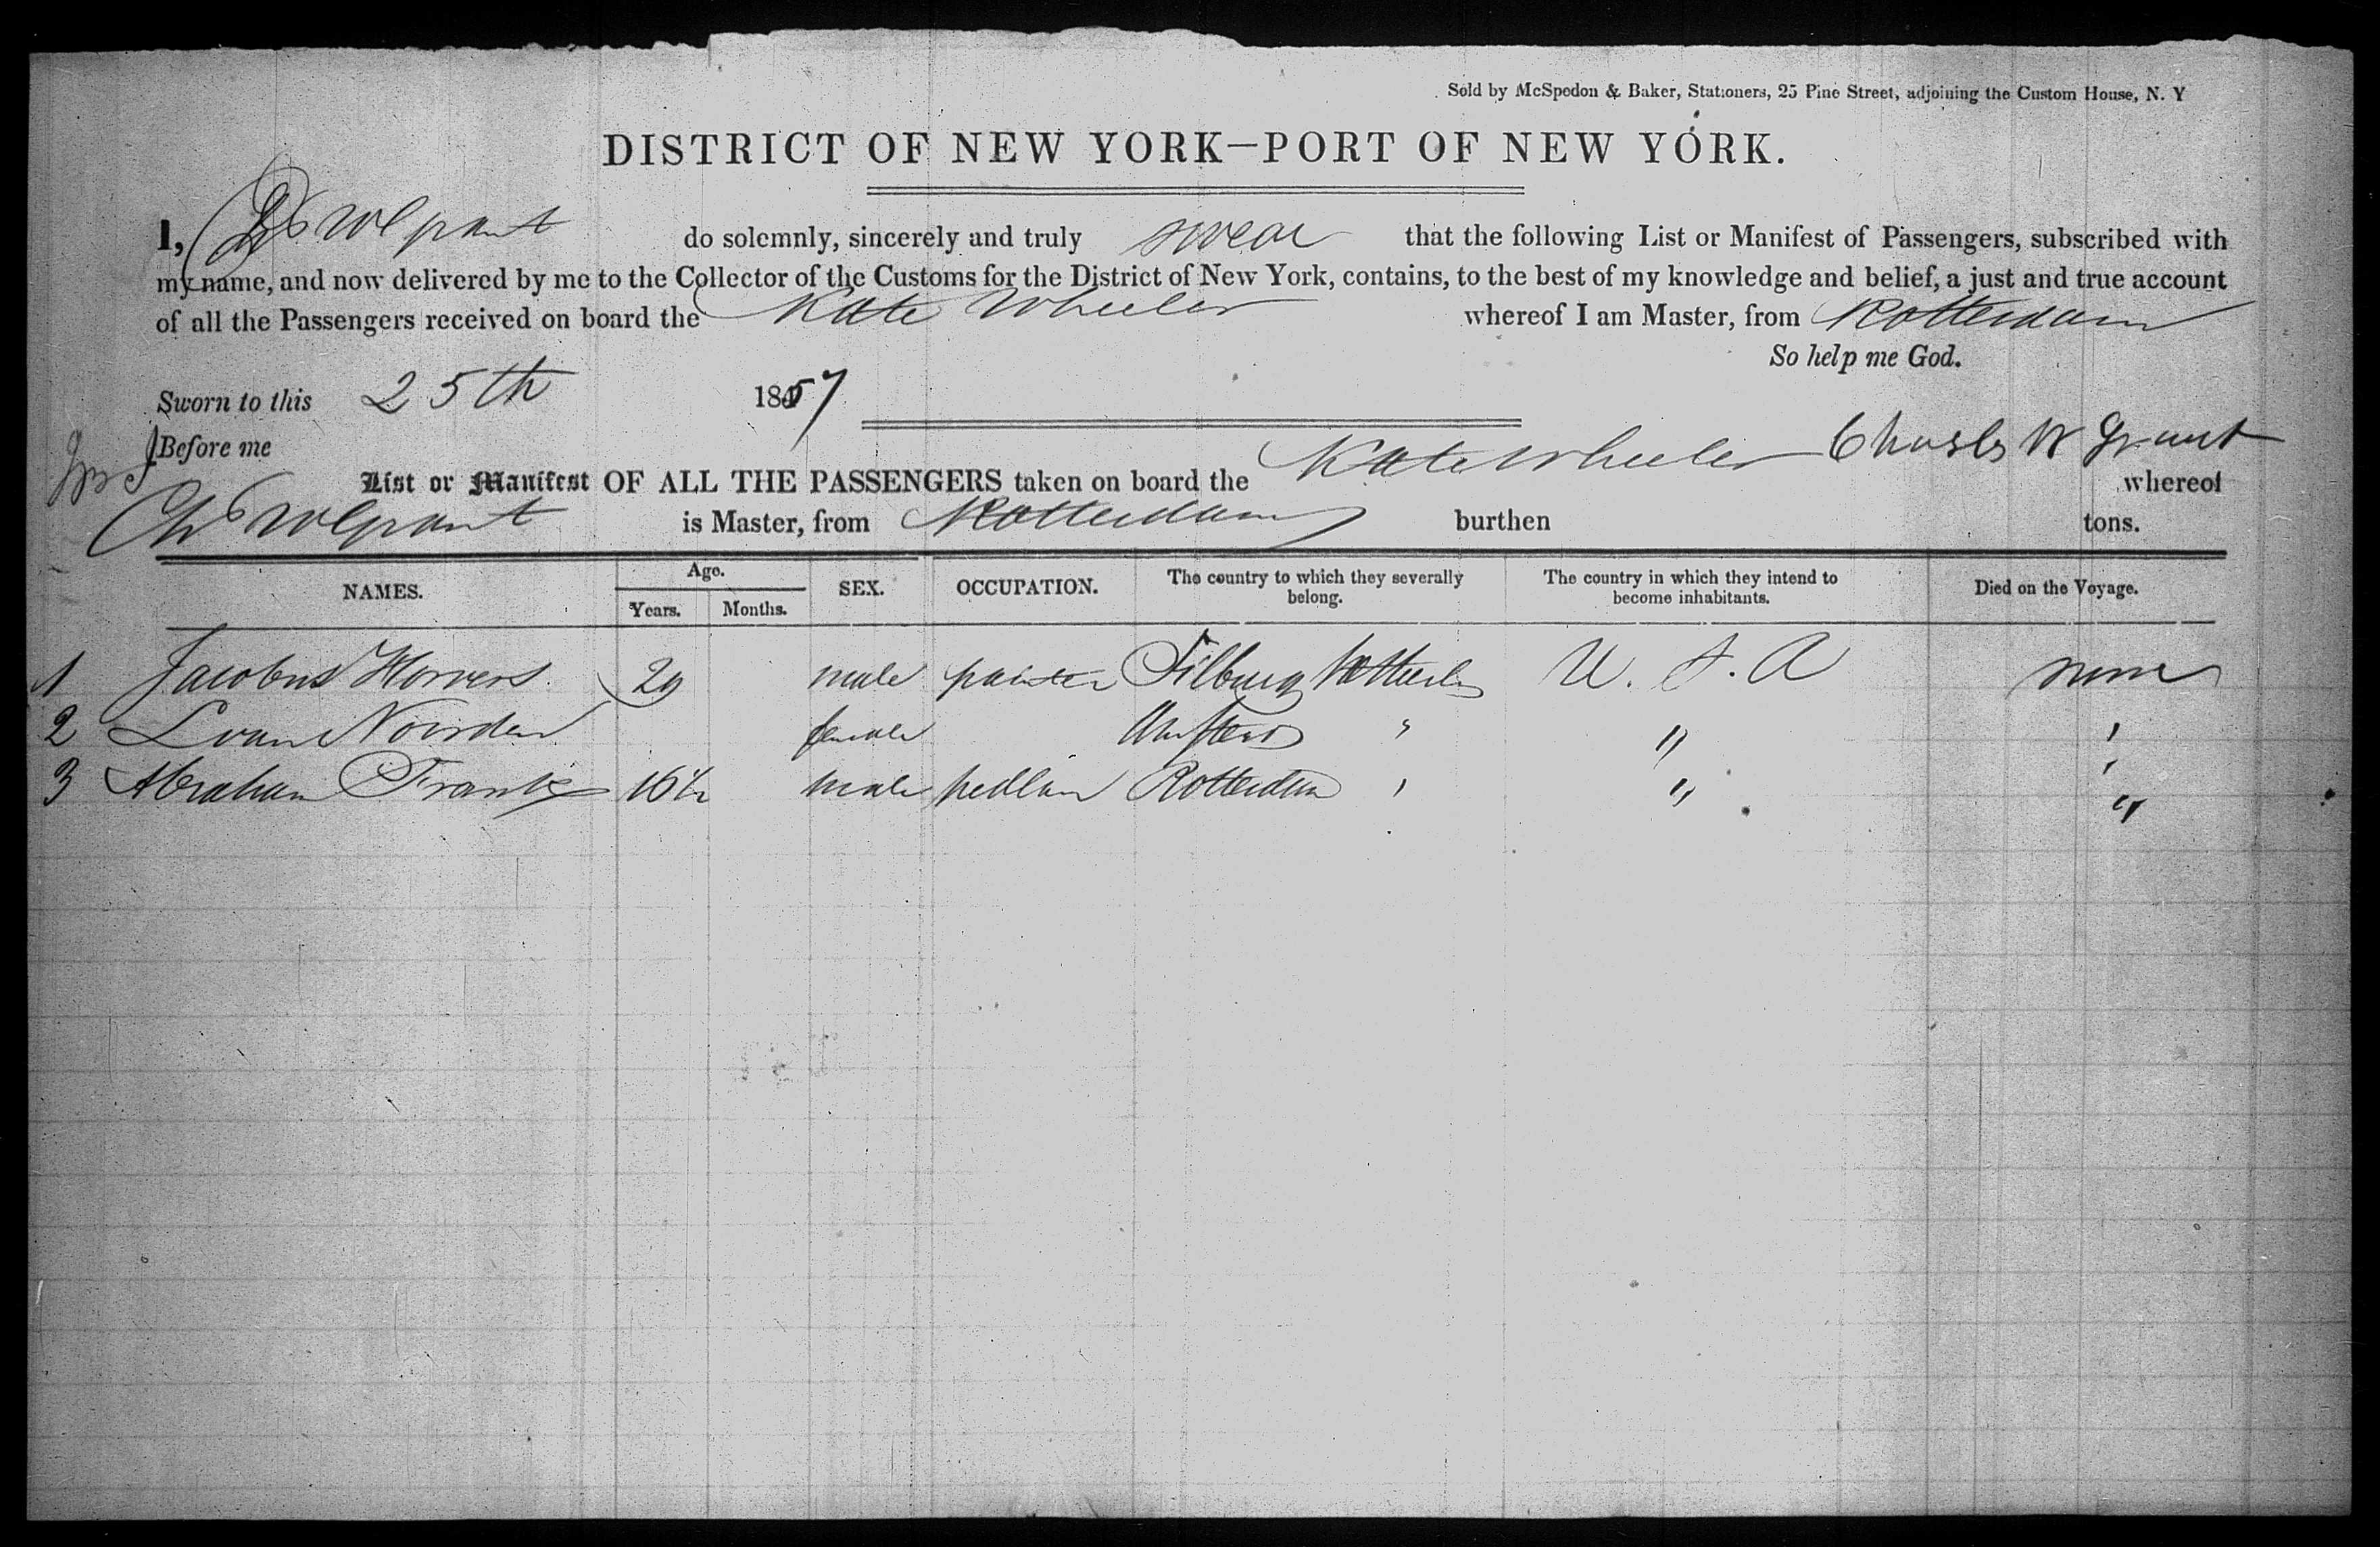 Sold by McSpedon & Baker, Stationers, 25 Pine Street, adjoining the Custom House, N. Y
DISTRICT OF NEW YORK—PORT OF NEW YORK.
I, do solemnly, sincerely and truly swear that the following List or Manifest of Passengers, subscribed with
my name, and now delivered by me to the Collector of the Customs for the District of New York, contains, to the best of my knowledge and belief, a just and true account
of all the Passengers received on board the Kate Wheeler whereof I am Master, from Rotterdam
So help me God.
Sworn to this 25th 1857
Before me Charles W Grant
List or Manifest OF ALL THE PASSENGERS taken on board the Kate Wheeler whereof
is Master, from Rotterdam burthen tons.
NAMES. Age. Years. Months. SEX. OCCUPATION. The country to which they severally belong. The country in which they intend to become inhabitants. Died on the Voyage.
1 Jacobus Horvers 29 male painter Tilburg U. S. A none
2 Norden female " "
3 Abraham Frank 16½ male pedlar Rotterdam " " "